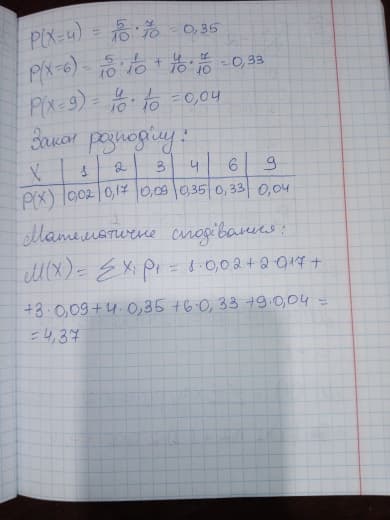 P(X=4) = 5/10 · 7/10 = 0,35
P(X=6) = 5/10 · 1/10 + 4/10 · 7/10 = 0,33
P(X=9) = 4/10 · 1/10 = 0,04
Закон розподілу:
X | 1 | 2 | 3 | 4 | 6 | 9
P(X) | 0,02 | 0,17 | 0,09 | 0,35 | 0,33 | 0,04
Математичне сподівання:
M(X) = ∑ Xi Pi = 1·0,02 + 2·0,17 +
+3·0,09 + 4·0,35 + 6·0,33 + 9·0,04 =
= 4,37